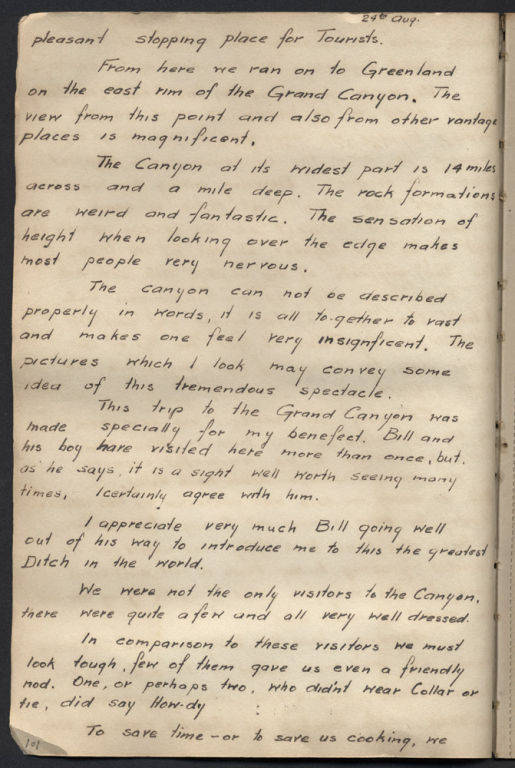 24th Aug.
pleasant stopping place for Tourists.
From here we ran on to Greenland
on the east rim of the Grand Canyon. The
view from this point and also from other vantage
places is magnificent.
The Canyon at its widest part is 14 miles
across and a mile deep. The rock formations
are weird and fantastic. The sensation of
height when looking over the edge makes
most people very nervous.
The canyon can not be described
properly in words, it is all to-gether to vast
and makes one feel very insignficent. The
pictures which I look may convey some
idea of this tremendous spectacle.
This trip to the Grand Canyon was
made specially for my benefect. Bill and
his boy have visited here more than once, but.
as he says, it is a sight well worth seeing many
times, I certainly agree with him.
I appreciate very much Bill going well
out of his way to introduce me to this the greatest
Ditch in the world.
We were not the only visitors to the Canyon,
there were quite a few and all very well dressed.
In comparison to these visitors we must
look tough, few of them gave us even a friendly
nod. One, or perhaps two, who didn't wear Collar or
tie, did say How-dy
To save time - or to save us cooking, we
101